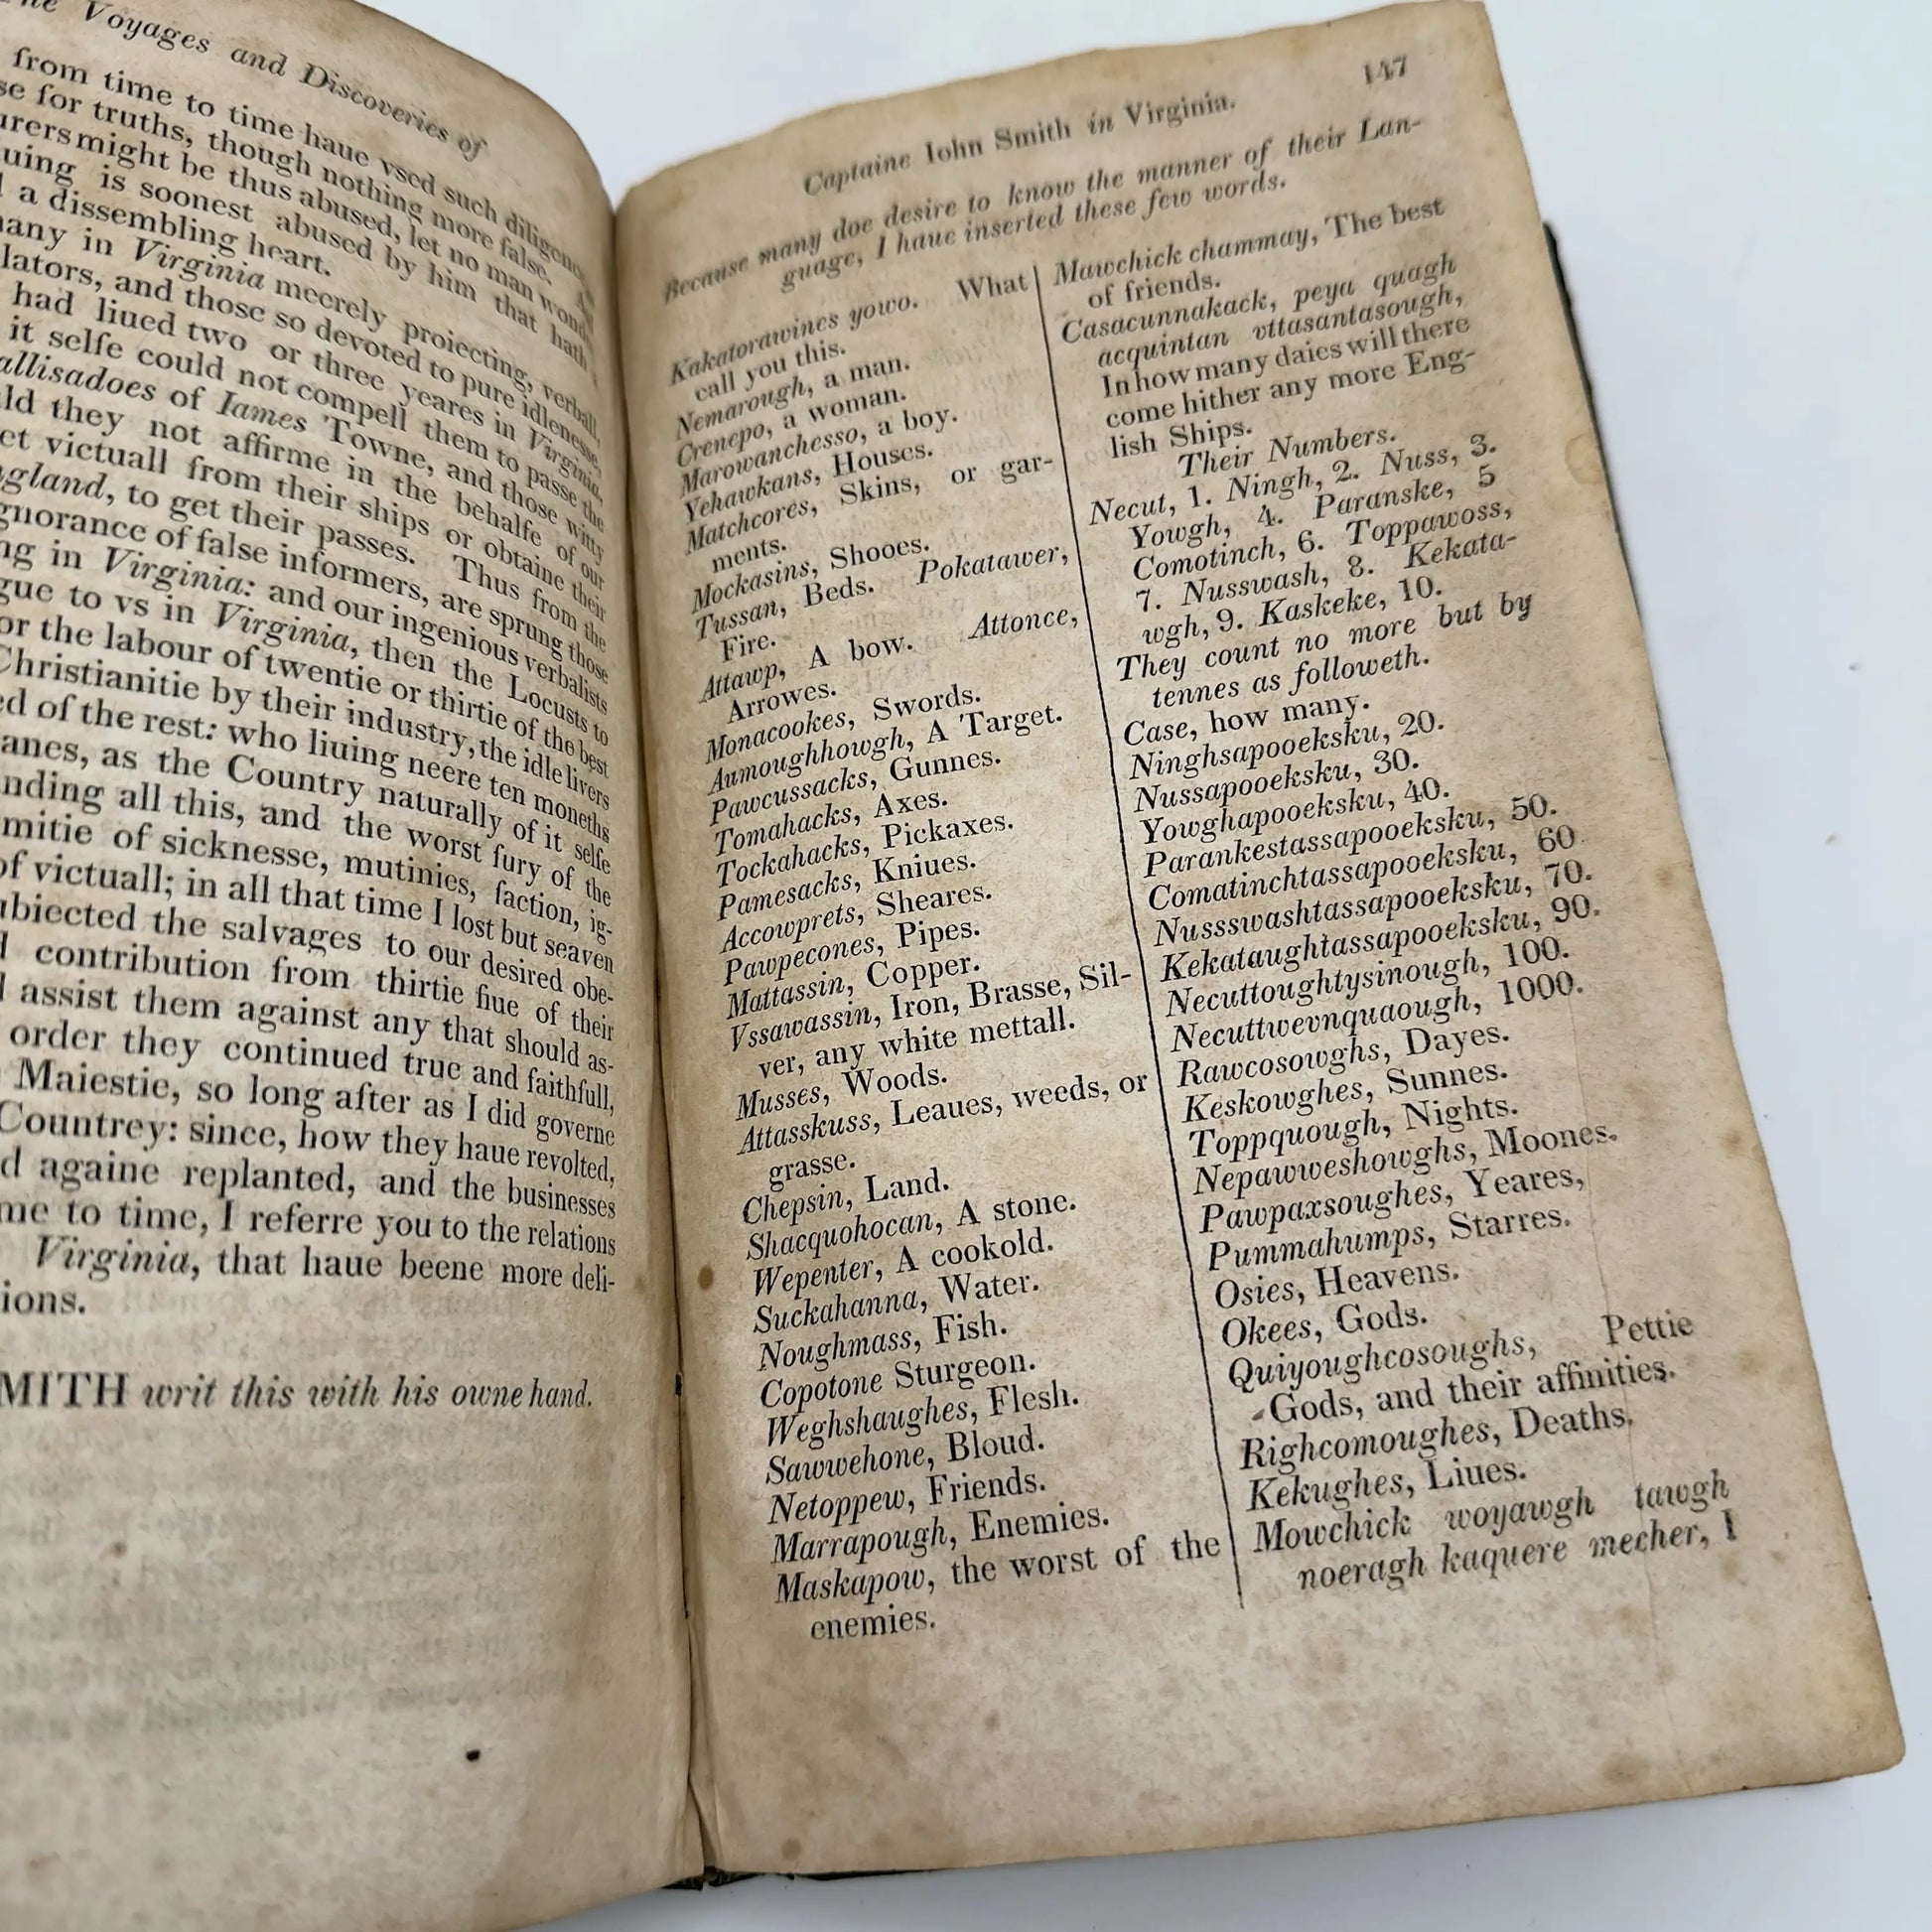 The Voyages and Discoveries of
from time to time haue vsed such diligence
se for truths, though nothing more false.
urers might be thus abused, let no man wonde
uing is soonest abused by him that hath
a dissembling heart.
many in Virginia meerely proiecting, verball,
lators, and those so devoted to pure idlenesse,
had liued two or three yeares in Virginia,
it selfe could not compell them to passe the
allisadoes of Iames Towne, and those witty
ld they not affirme in the behalfe of our
ct victuall from their ships or obtaine their
ngland, to get their passes. Thus from the
gnorance of false informers, are sprung those
ng in Virginia: and our ingenious verbalists
gue to vs in Virginia, then the Locusts to
or the labour of twentie or thirtie of the best
Christianitie by their industry, the idle livers
ed of the rest: who liuing neere ten moneths
anes, as the Country naturally of it selfe
nding all this, and the worst fury of the
mitie of sicknesse, mutinies, faction, ig-
of victuall; in all that time I lost but seaven
ubiected the salvages to our desired obe-
contribution from thirtie fiue of their
assist them against any that should as-
order they continued true and faithfull,
Maiestie, so long after as I did governe
Countrey: since, how they haue revolted,
d againe replanted, and the businesses
me to time, I referre you to the relations
Virginia, that haue beene more deli-
ions.
MITH writ this with his owne hand.
Captaine Iohn Smith in Virginia. 147
Because many doe desire to know the manner of their Lan-
guage, I haue inserted these few words.
Kakatorawines yowo. What
call you this.
Nemarough, a man.
Crenepo, a woman.
Marowanchesso, a boy.
Yehawkans, Houses.
Matchcores, Skins, or gar-
ments.
Mockasins, Shooes.
Tussan, Beds. Pokatawer,
Fire.
Attawp, A bow. Attonce,
Arrowes.
Monacookes, Swords.
Aumoughhowgh, A Target.
Pawcussacks, Gunnes.
Tomahacks, Axes.
Tockahacks, Pickaxes.
Pamesacks, Kniues.
Accowprets, Sheares.
Pawpecones, Pipes.
Mattassin, Copper.
Vssawassin, Iron, Brasse, Sil-
ver, any white mettall.
Musses, Woods.
Attasskuss, Leaues, weeds, or
grasse.
Chepsin, Land.
Shacquohocan, A stone.
Wepenter, A cookold.
Suckahanna, Water.
Noughmass, Fish.
Copotone Sturgeon.
Weghshaughes, Flesh.
Sawwehone, Bloud.
Netoppew, Friends.
Marrapough, Enemies.
Maskapow, the worst of the
enemies.
Mawchick chammay, The best
of friends.
Casacunnakack, peya quagh
acquintan vttasantasough,
In how many daies will there
come hither any more Eng-
lish Ships.
Their Numbers.
Necut, 1. Ningh, 2. Nuss, 3.
Yowgh, 4. Paranske, 5
Comotinch, 6. Toppawoss,
7. Nusswash, 8. Kekata-
wgh, 9. Kaskeke, 10.
They count no more but by
tennes as followeth.
Case, how many.
Ninghsapooeksku, 20.
Nussapooeksku, 30.
Yowghapooeksku, 40.
Parankestassapooeksku, 50.
Comatinchtassapooeksku, 60
Nussswashtassapooeksku, 70.
Kekataughtassapooeksku, 90.
Necuttoughtysinough, 100.
Necuttwevnquaough, 1000.
Rawcosowghs, Dayes.
Keskowghes, Sunnes.
Toppquough, Nights.
Nepawweshowghs, Moones.
Pawpaxsoughes, Yeares,
Pummahumps, Starres.
Osies, Heavens.
Okees, Gods.
Quiyoughcosoughs, Pettie
Gods, and their affinities.
Righcomoughes, Deaths.
Kekughes, Liues.
Mowchick woyawgh tawgh
noeragh kaquere mecher, I